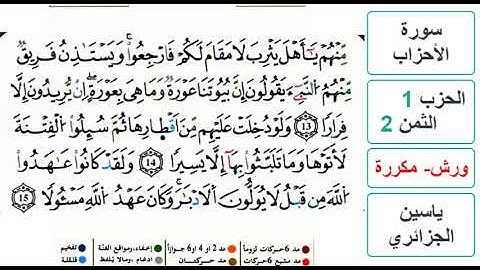 مِّنْهُمْ يَٰٓأَهْلَ يَثْرِبَ لَا مَقَامَ لَكُمْ فَارْجِعُواْۖ وَيَسْتَٰذِنُ فَرِيقٌ
مِّنْهُمُ النَّبِيٓءَ يَقُولُونَ إِنَّ بُيُوتَنَا عَوْرَةٌ وَمَا هِيَ بِعَوْرَةٍۖ إِنْ يُّرِيدُونَ إِلَّا
فِرَارًا 13 وَلَوْ دُخِلَتْ عَلَيْهِم مِّنْ أَقْطَارِهَا ثُمَّ سُئِلُواْ الْفِتْنَةَ
لَأَتَوْهَا وَمَا تَلَبَّثُواْ بِهَآ إِلَّا يَسِيرًا 14 وَلَقَدْ كَانُواْ عَٰهَدُواْ
اللَّهَ مِن قَبْلُ لَا يُوَلُّونَ الْأَدْبَٰرَۖ وَكَانَ عَهْدُ اللَّهِ مَسْـُٔولًا 15
سورة
الأحزاب
الحزب 1
الثمن 2
ورش- مكررة
ياسين
الجزائري
مد 6 حركات لزوماً مد 2 أو 4 أو 6 جوازاً إخفاء، ومواقع الغنة تفخيم
مد مشبع 6 حركات مد حركتان ادغام، ومالا يلفظ قلقلة